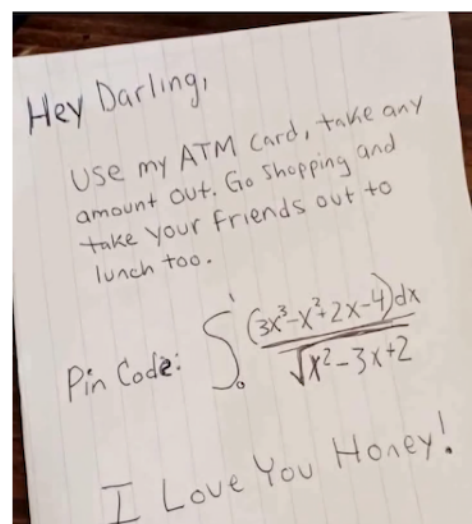 Hey Darling,
Use my ATM Card, take any
amount out. Go Shopping and
take your friends out to
lunch too.
Pin Code: ∫₀¹ (3x³-x²+2x-4)dx / √x²-3x+2
I Love You Honey!